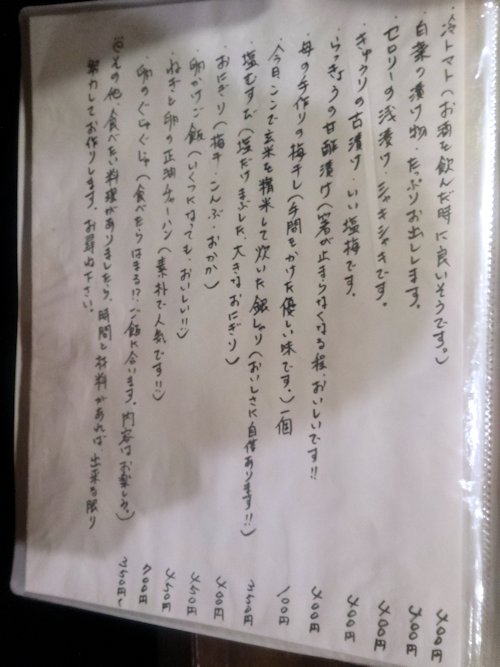 ・冷トマト(お酒を飲んだ時に良いそうです。) 400円
・白菜の漬け物・たっぷりお出しします。 400円
・セロリーの浅漬け・シャキシャキです。 400円
・きゅうりの古漬け・いい塩梅です。 400円
・らっきょうの甘酢漬け(箸が止まらなくなる程、おいしいです!!) 400円
・母の手作りの梅干し(手間をかけた優しい味です。)一個 100円
・今日ここで玄米を精米して炊いた銀しゃり(おいしさに自信あります!!) 350円
・塩むすび(塩だけまぶした、大きなおにぎり) 400円
・おにぎり(梅干・こんぶ・おかか) 450円
・卵かけご飯(いくつになっても、おいしい!!) 450円
・ねぎと卵の正油チャーハン(素朴で人気です!!) 700円
・卵のぐちゃぐちゃ(食べたらはまる!?ご飯に合います。内容はお楽しみ。) 350円~
◎その他、食べたい料理がありましたら、時間と材料があれば、出来る限り
努力してお作りします。お尋ね下さい。